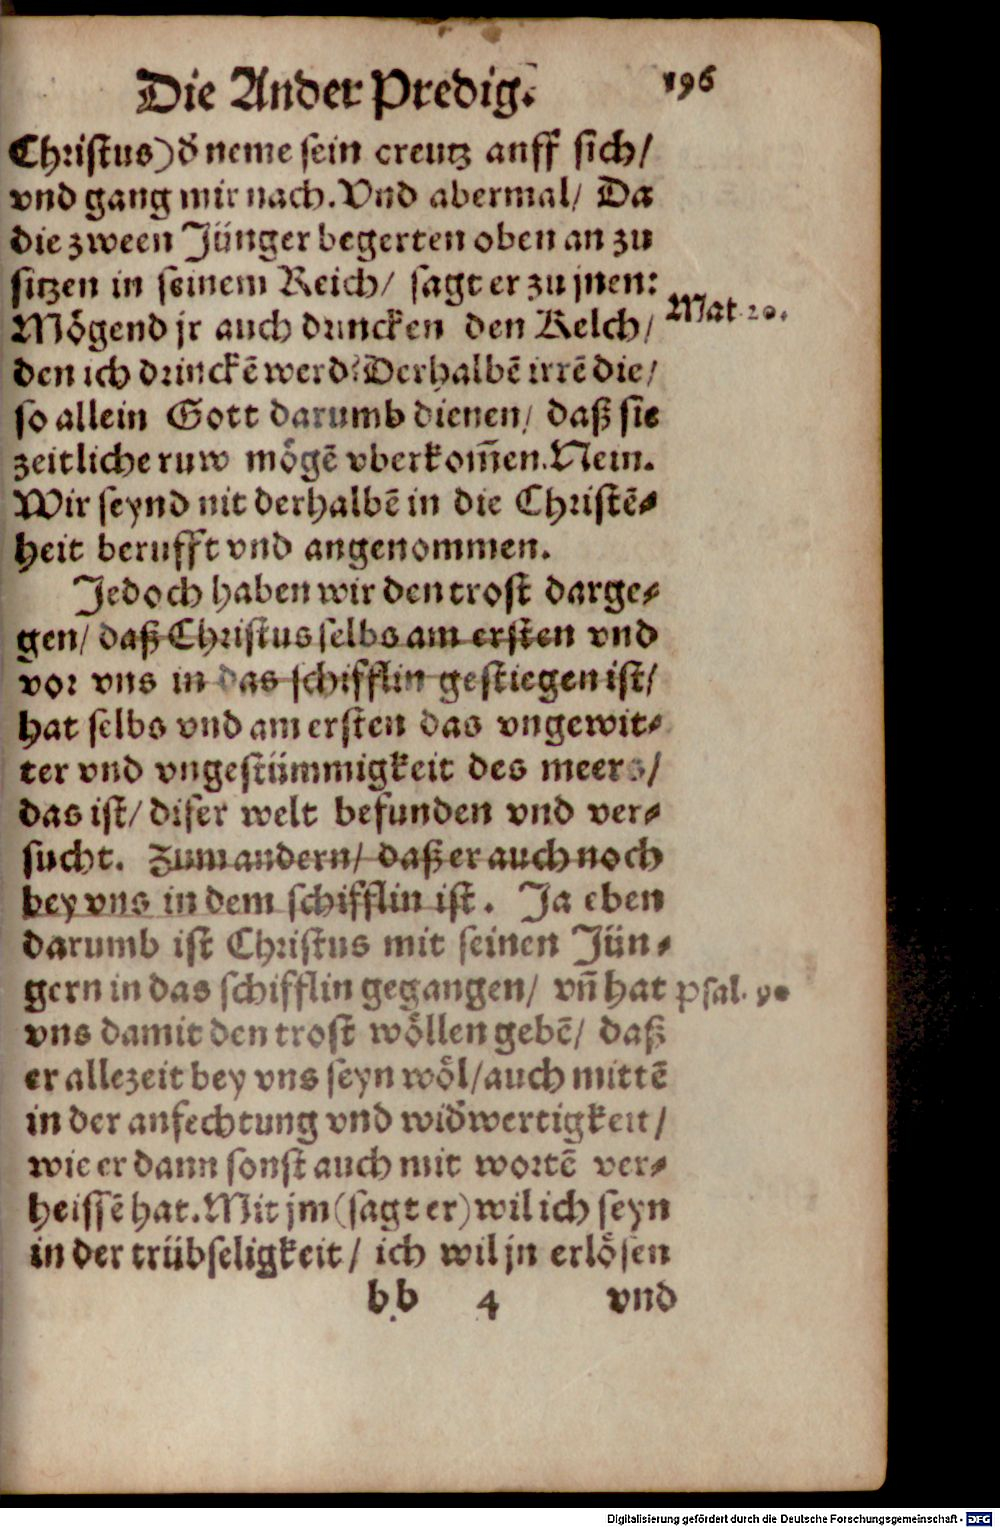 Die Ander Predig. 196
Christus) d̄ neme sein creutz auff sich/
vnd gang mir nach. Vnd abermal/ Da
die zween Jünger begerten oben an zu
sitzen in seinem Reich/ sagt er zu jnen:
Mögend jr auch drincken den Kelch/ Mat. 20.
den ich drinckē werd? Derhalbē irrē die/
so allein Gott darumb dienen/ daß sie
zeitliche ruw mögē vberkom̄en. Nein.
Wir seynd nit derhalbē in die Christē-
heit berufft vnd angenommen.
Jedoch haben wir den trost darge-
gen/ daß Christus selbs am ersten vnd
vor vns in das schifflin gestiegen ist/
hat selbs vnd am ersten das vngewit-
ter vnd vngestümmigkeit des meers/
das ist/ diser welt befunden vnd ver-
sucht. Zum andern/ daß er auch noch
bey vns in dem schifflin ist. Ja eben
darumb ist Christus mit seinen Jün-
gern in das schifflin gegangen/ vn̄ hat Psal. 90
vns damit den trost wöllen gebē/ daß
er allezeit bey vns seyn wöl/ auch mittē
in der anfechtung vnd wid̄wertigkeit/
wie er dann sonst auch mit wortē ver-
heissē hat. Mit jm (sagt er) wil ich seyn
in der trübseligkeit/ ich wil jn erlösen
bb 4 vnd
Digitalisierung gefördert durch die Deutsche Forschungsgemeinschaft - DFG